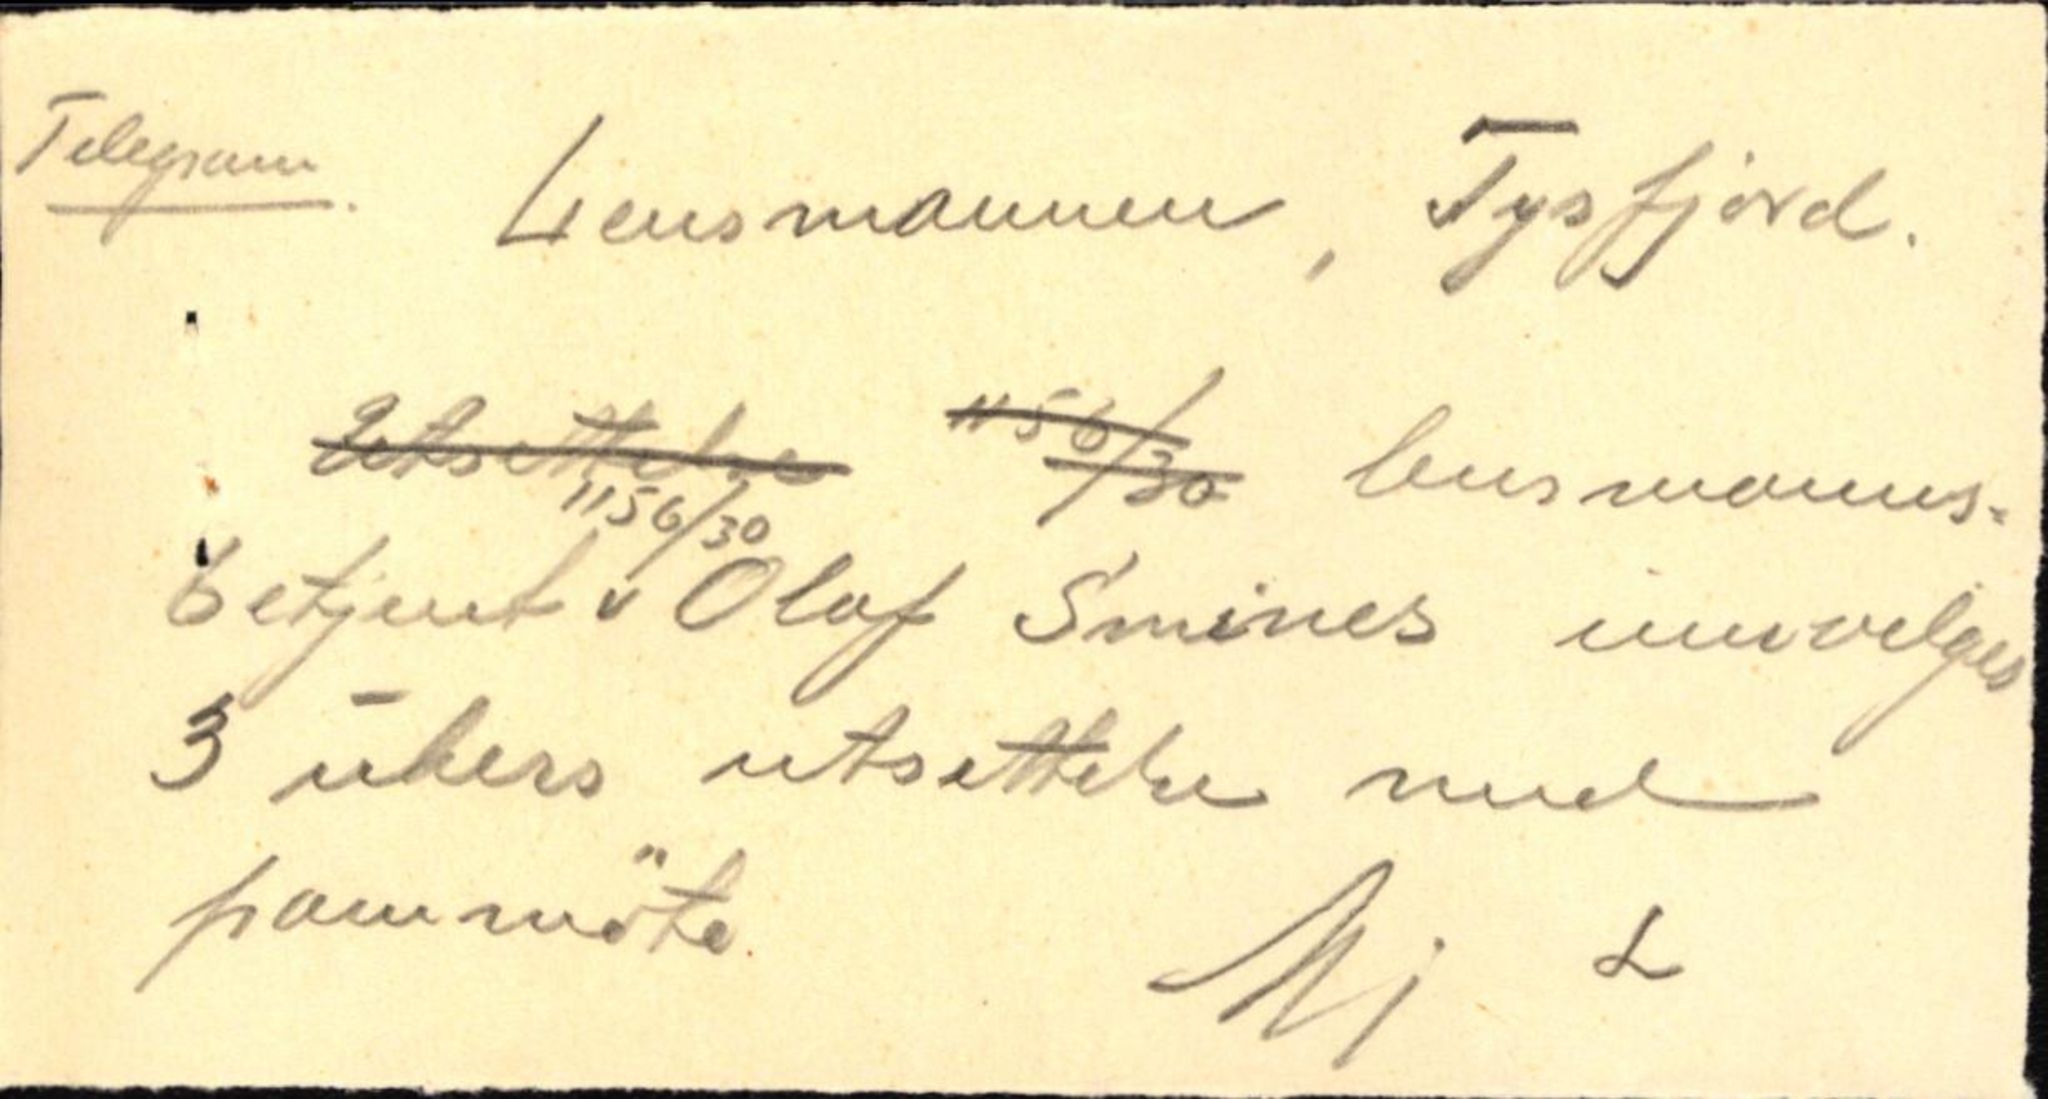 Telegram.
Lensmannen, Tysfjord.
Utsettelse 1156/30 lensmanns-
1156/30
betjent v Olaf Smines innvelges
3 ukers utsettelse med
frammöte
L